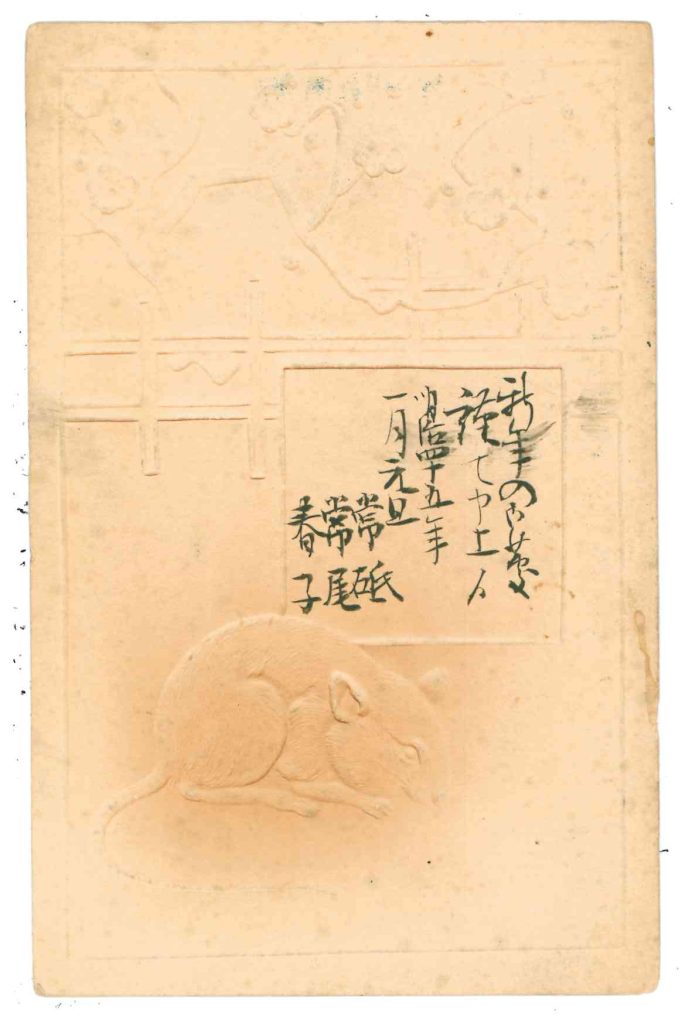 新年の御慶
謹で申上候
明治四十五年
一月元旦
常砥
常尾
春子